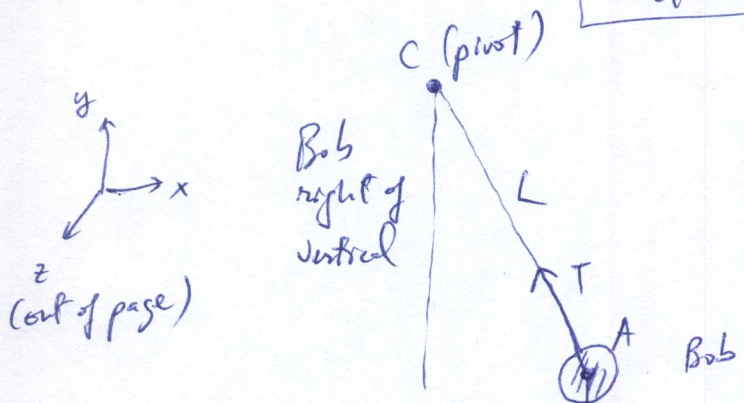 C (pivot)
y
x
z
(out of page)
Bob
right of
vertical
L
T
A
Bob